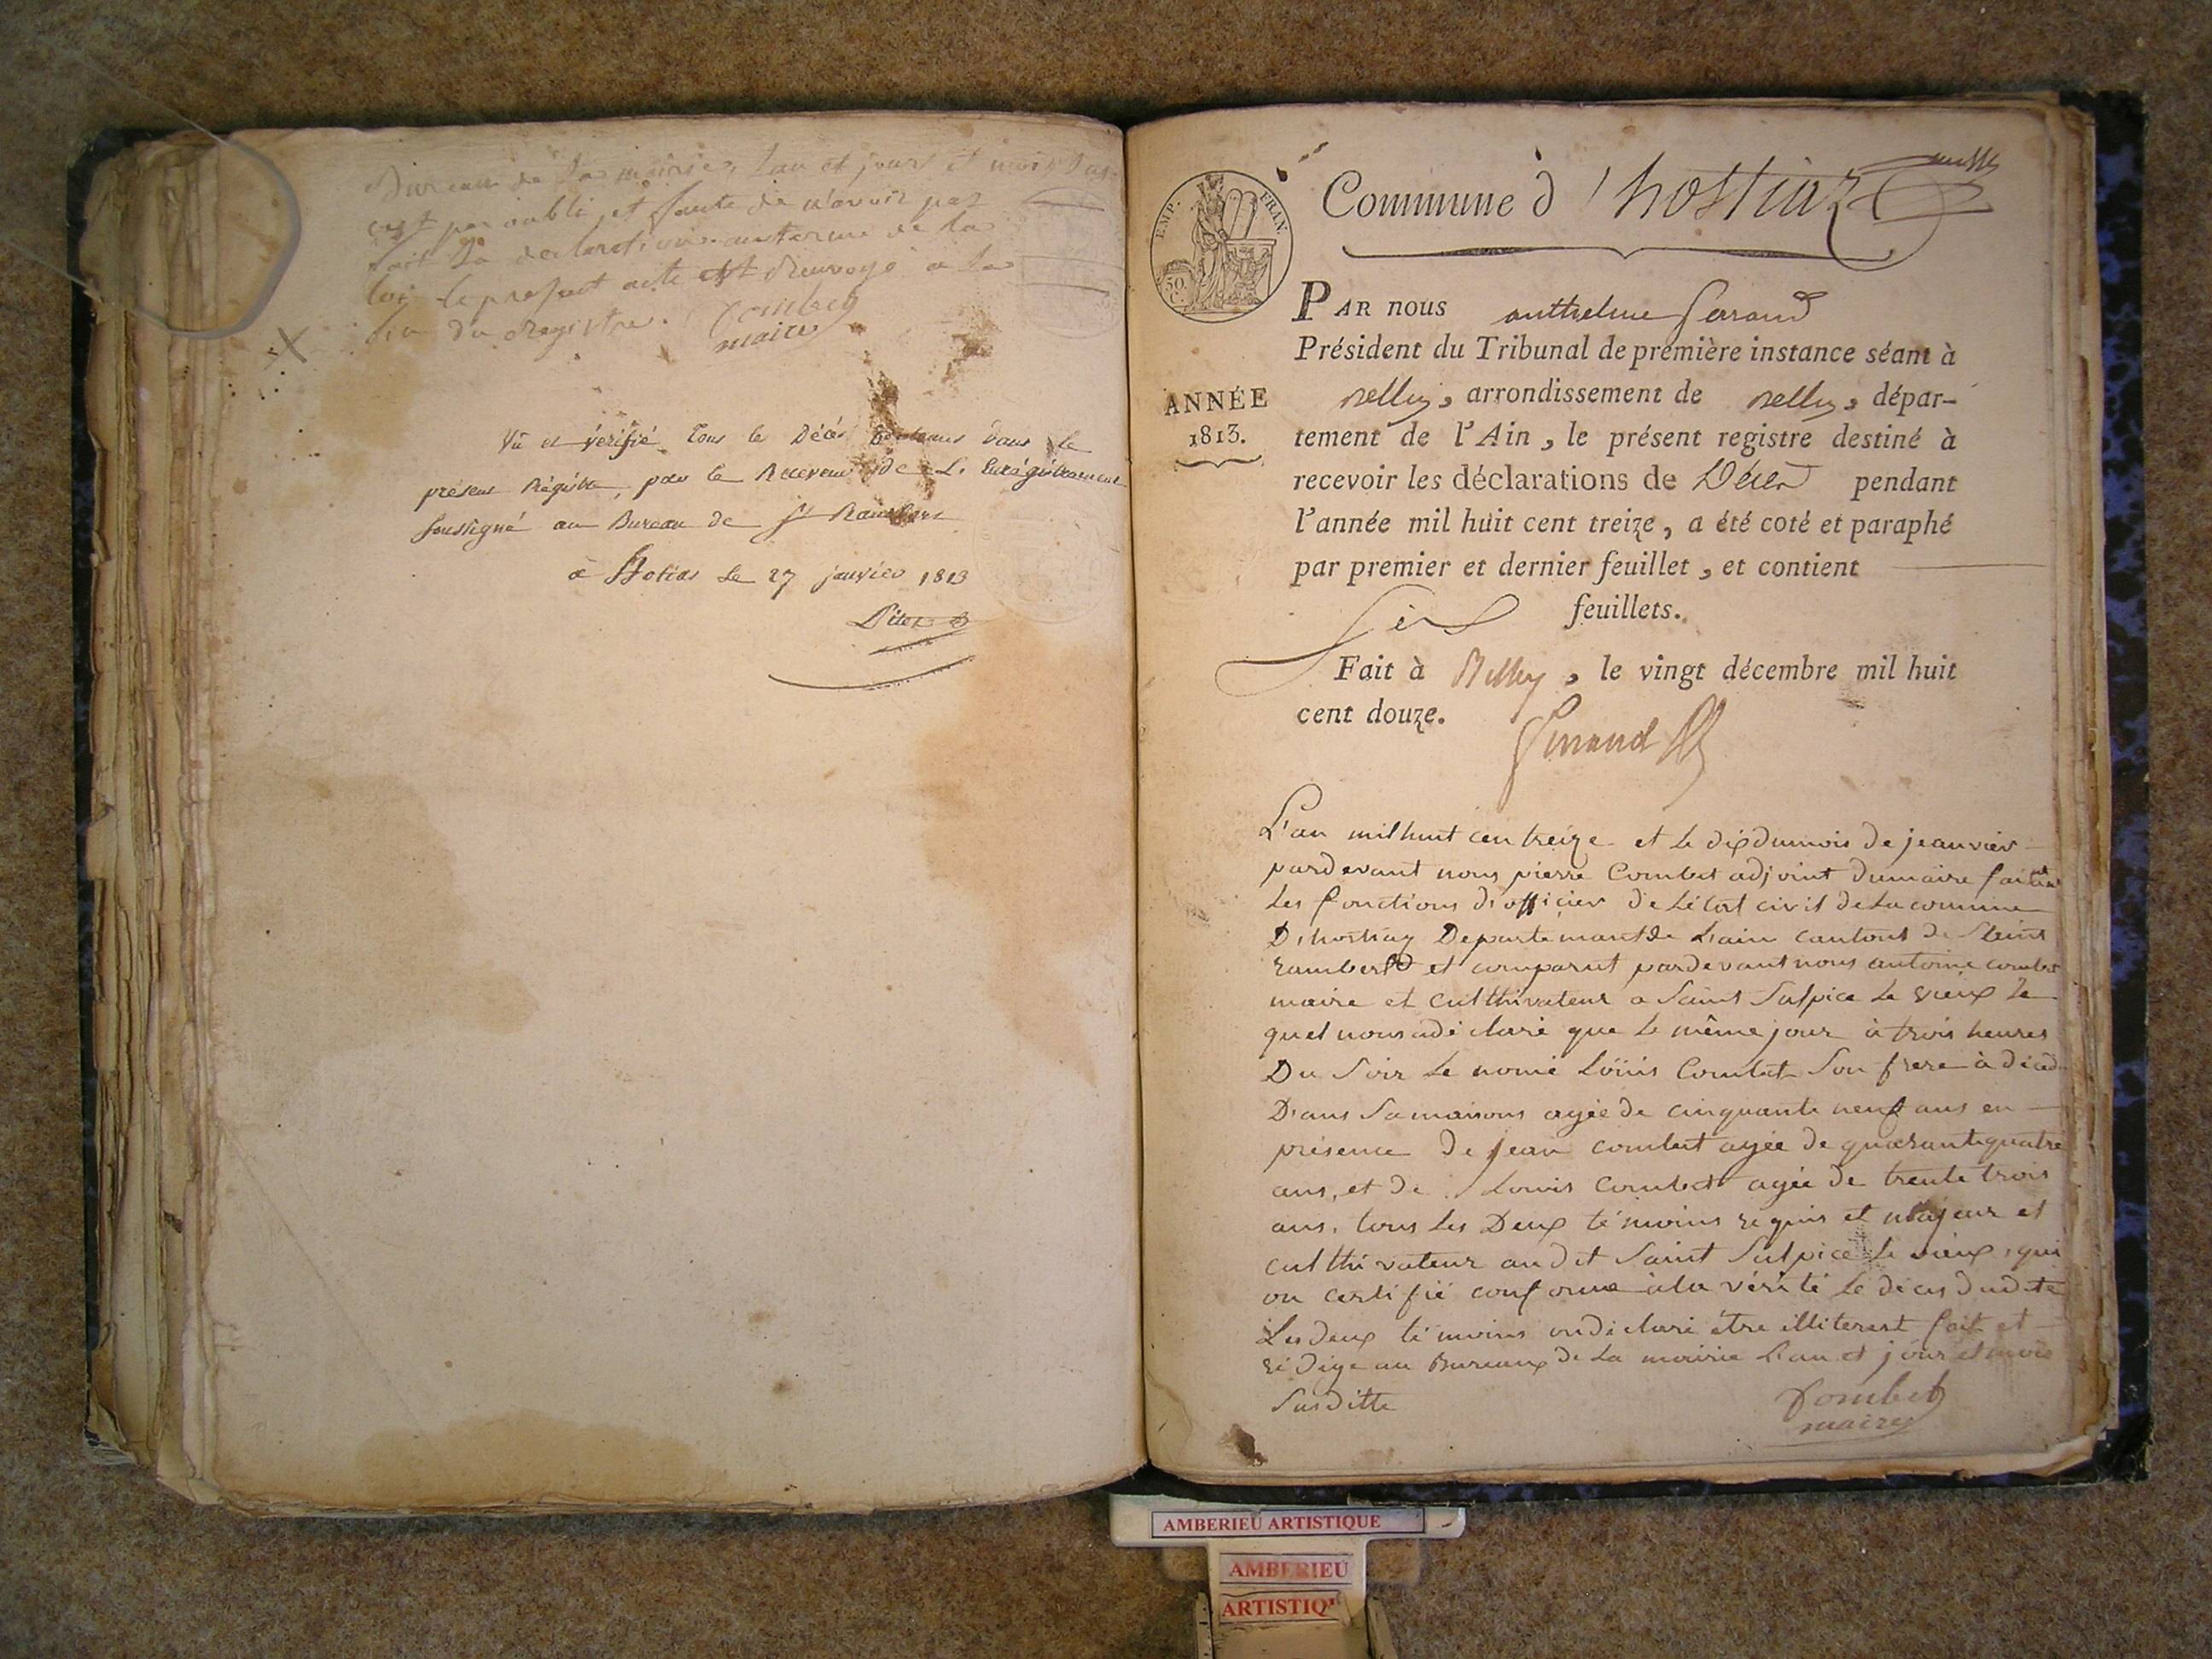 Bureau de la mairie, l'an et jour et mois dus
c'est par oubli et faute de n'avoir pas
fait la declaration au terme de la
loi le present acte est Renvoyé a la
fin du Registre. Combet
maire
Vû et verifié tous les Décés contenus dans le
présent Régistre, par le Receveur de L'Enrégistrement
soussigné au Bureau de St Rambert
à Hotias Le 27 janvier 1813
EMP. FRAN.
50 C.
Commune d'hostiaz
PAR nous anthelme
Président du Tribunal de première instance séant à
Belley, arrondissement de Belley, dépar-
ANNÉE
1813.
tement de l'Ain, le présent registre destiné à
recevoir les déclarations de Décès pendant
l'année mil huit cent treize, a été coté et paraphé
par premier et dernier feuillet, et contient
Six feuillets.
Fait à Belley, le vingt décembre mil huit
cent douze.
L'an mil huit cen treize et le dix du mois de jeanvier
pardevant nous pierre Combet adjoint du maire faisant
Les fonctions d'officier de L'état civil de La commune
D'hostiaz Departemant de L'ain cantont de Saint
rambert et comparut pardevant nous antoine combet
maire et culthivateur a Saint Sulpice Le vieux Le
quel nous a déclaré que Le même jour à trois heures
Du Soir Le nomé Löüis Combet Son frere à décéd
Dans Sa maisons agée de cinquante neuf ans en
présence De jean combet agée de quarante quatre
ans, et De Louis Combet agée De trente trois
ans. tous Les Deux témoins requis et majeur et
culthivateur au dit Saint Sulpice Le vieux, qui
on certifié conforme à la vérité Le décès dudite
Les deux témoins on déclaré être illiterest fait et
rédige au Bureaux de La mairie L'an et jour et mois
Susditte
Combet
maire
AMBERIEU ARTISTIQUE
AMBERIEU
ARTISTIQ